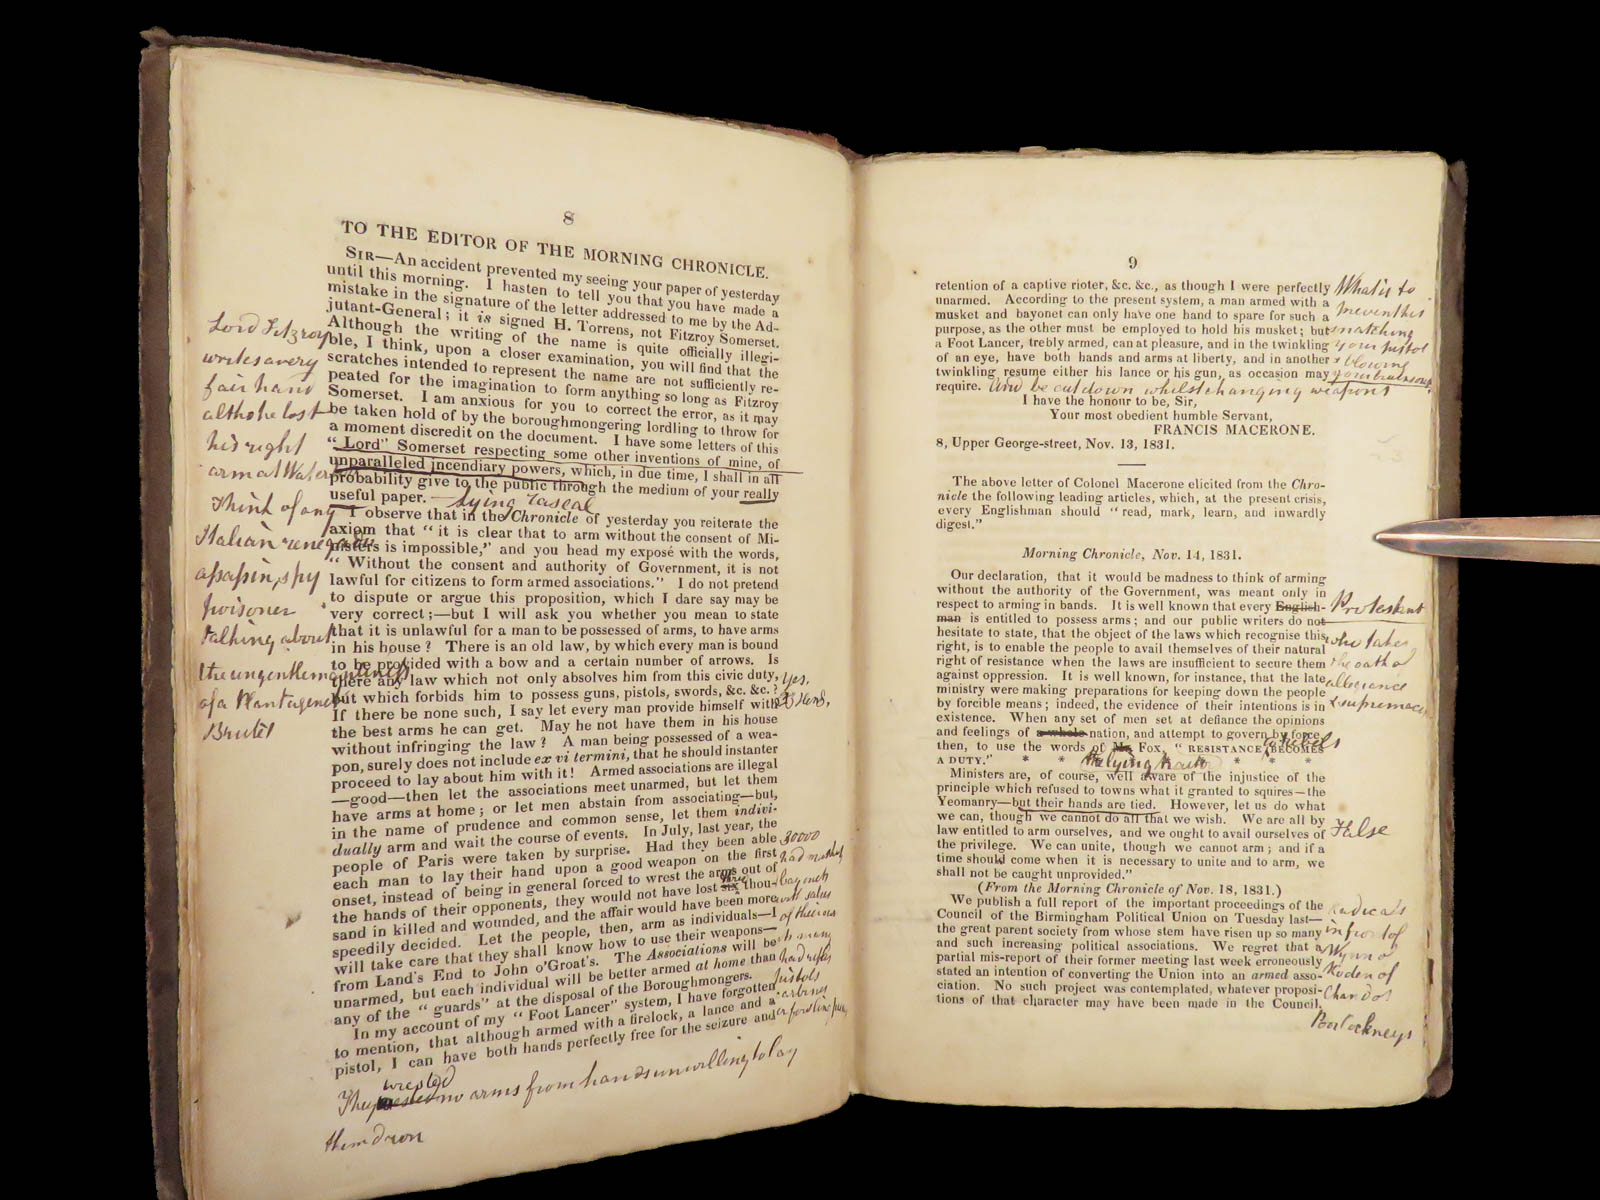 8
TO THE EDITOR OF THE MORNING CHRONICLE.
SIR—An accident prevented my seeing your paper of yesterday
until this morning. I hasten to tell you that you have made a
mistake in the signature of the letter addressed to me by the Ad-
jutant-General; it is signed H. Torrens, not Fitzroy Somerset.
Although the writing of the name is quite officially illegi-
ble, I think, upon a closer examination, you will find that the
scratches intended to represent the name are not sufficiently re-
peated for the imagination to form anything so long as Fitzroy
Somerset. I am anxious for you to correct the error, as it may
be taken hold of by the boroughmongering lordling to throw for
a moment discredit on the document. I have some letters of this
“Lord” Somerset respecting some other inventions of mine, of
unparalleled incendiary powers, which, in due time, I shall in all
probability give to the public through the medium of your really
useful paper. — lying rascal
I observe that in the Chronicle of yesterday you reiterate the
axiom that “it is clear that to arm without the consent of Mi-
nisters is impossible,” and you head my exposé with the words,
“Without the consent and authority of Government, it is not
lawful for citizens to form armed associations.” I do not pretend
to dispute or argue this proposition, which I dare say may be
very correct;—but I will ask you whether you mean to state
that it is unlawful for a man to be possessed of arms, to have arms
in his house? There is an old law, by which every man is bound
to be provided with a bow and a certain number of arrows. Is
there any law which not only absolves him from this civic duty,
but which forbids him to possess guns, pistols, swords, &c. &c.?
If there be none such, I say let every man provide himself with
the best arms he can get. May he not have them in his house
without infringing the law? A man being possessed of a wea-
pon, surely does not include ex vi termini, that he should instanter
proceed to lay about him with it! Armed associations are illegal
—good—then let the associations meet unarmed, but let them
have arms at home; or let men abstain from associating—but,
in the name of prudence and common sense, let them indivi-
dually arm and wait the course of events. In July, last year, the
people of Paris were taken by surprise. Had they been able
each man to lay their hand upon a good weapon on the first
onset, instead of being in general forced to wrest the arms out of
the hands of their opponents, they would not have lost six thou-
sand in killed and wounded, and the affair would have been more
speedily decided. Let the people, then, arm as individuals—I
will take care that they shall know how to use their weapons—
from Land's End to John o'Groat's. The Associations will be
unarmed, but each individual will be better armed at home than
any of the “guards” at the disposal of the Boroughmongers.
In my account of my “Foot Lancer” system, I have forgotten
to mention, that although armed with a firelock, a lance and a
pistol, I can have both hands perfectly free for the seizure and
Lord Fitzroy
writes a very
fair hand
altho he lost
his right
arm at Waterloo
Think of any
Italian renegade
assassin, spy
poisoner
talking about
the ungentlemanliness
of a Plantagenet
Brute!
Yes,
30000
had muskets
bayonets
of their own
many
had rifles
pistols
wrested
They no arms from hands unwilling to lay
them down
9
retention of a captive rioter, &c. &c., as though I were perfectly
unarmed. According to the present system, a man armed with a
musket and bayonet can only have one hand to spare for such a
purpose, as the other must be employed to hold his musket; but
a Foot Lancer, trebly armed, can at pleasure, and in the twinkling
of an eye, have both hands and arms at liberty, and in another
twinkling resume either his lance or his gun, as occasion may
require. And be cut down whilst changing weapons
What is to
prevent his
snatching
your pistol
& blowing
your brains out
I have the honour to be, Sir,
Your most obedient humble Servant,
FRANCIS MACERONE.
8, Upper George-street, Nov. 13, 1831.
The above letter of Colonel Macerone elicited from the Chro-
nicle the following leading articles, which, at the present crisis,
every Englishman should “read, mark, learn, and inwardly
digest.”
Morning Chronicle, Nov. 14, 1831.
Our declaration, that it would be madness to think of arming
without the authority of the Government, was meant only in
respect to arming in bands. It is well known that every English-
man is entitled to possess arms; and our public writers do not
hesitate to state, that the object of the laws which recognise this
right, is to enable the people to avail themselves of their natural
right of resistance when the laws are insufficient to secure them
against oppression. It is well known, for instance, that the late
ministry were making preparations for keeping down the people
by forcible means; indeed, the evidence of their intentions is in
existence. When any set of men set at defiance the opinions
and feelings of a whole nation, and attempt to govern by force,
then, to use the words of Mr. Fox, “RESISTANCE BECOMES
A DUTY.” * * * * * *
Protestant
who takes
the oath of
allegiance
& supremacy
to rebels
the lying traitor
Ministers are, of course, well aware of the injustice of the
principle which refused to towns what it granted to squires—the
Yeomanry—but their hands are tied. However, let us do what
we can, though we cannot do all that we wish. We are all by
law entitled to arm ourselves, and we ought to avail ourselves of
the privilege. We can unite, though we cannot arm; and if a
time should come when it is necessary to unite and to arm, we
shall not be caught unprovided.”
False
(From the Morning Chronicle of Nov. 18, 1831.)
We publish a full report of the important proceedings of the
Council of the Birmingham Political Union on Tuesday last—
the great parent society from whose stem have risen up so many
and such increasing political associations. We regret that a
partial mis-report of their former meeting last week erroneously
stated an intention of converting the Union into an armed asso-
ciation. No such project was contemplated, whatever proposi-
tions of that character may have been made in the Council,
Radicals
in front of
Wynn &
Roden of
Chandos